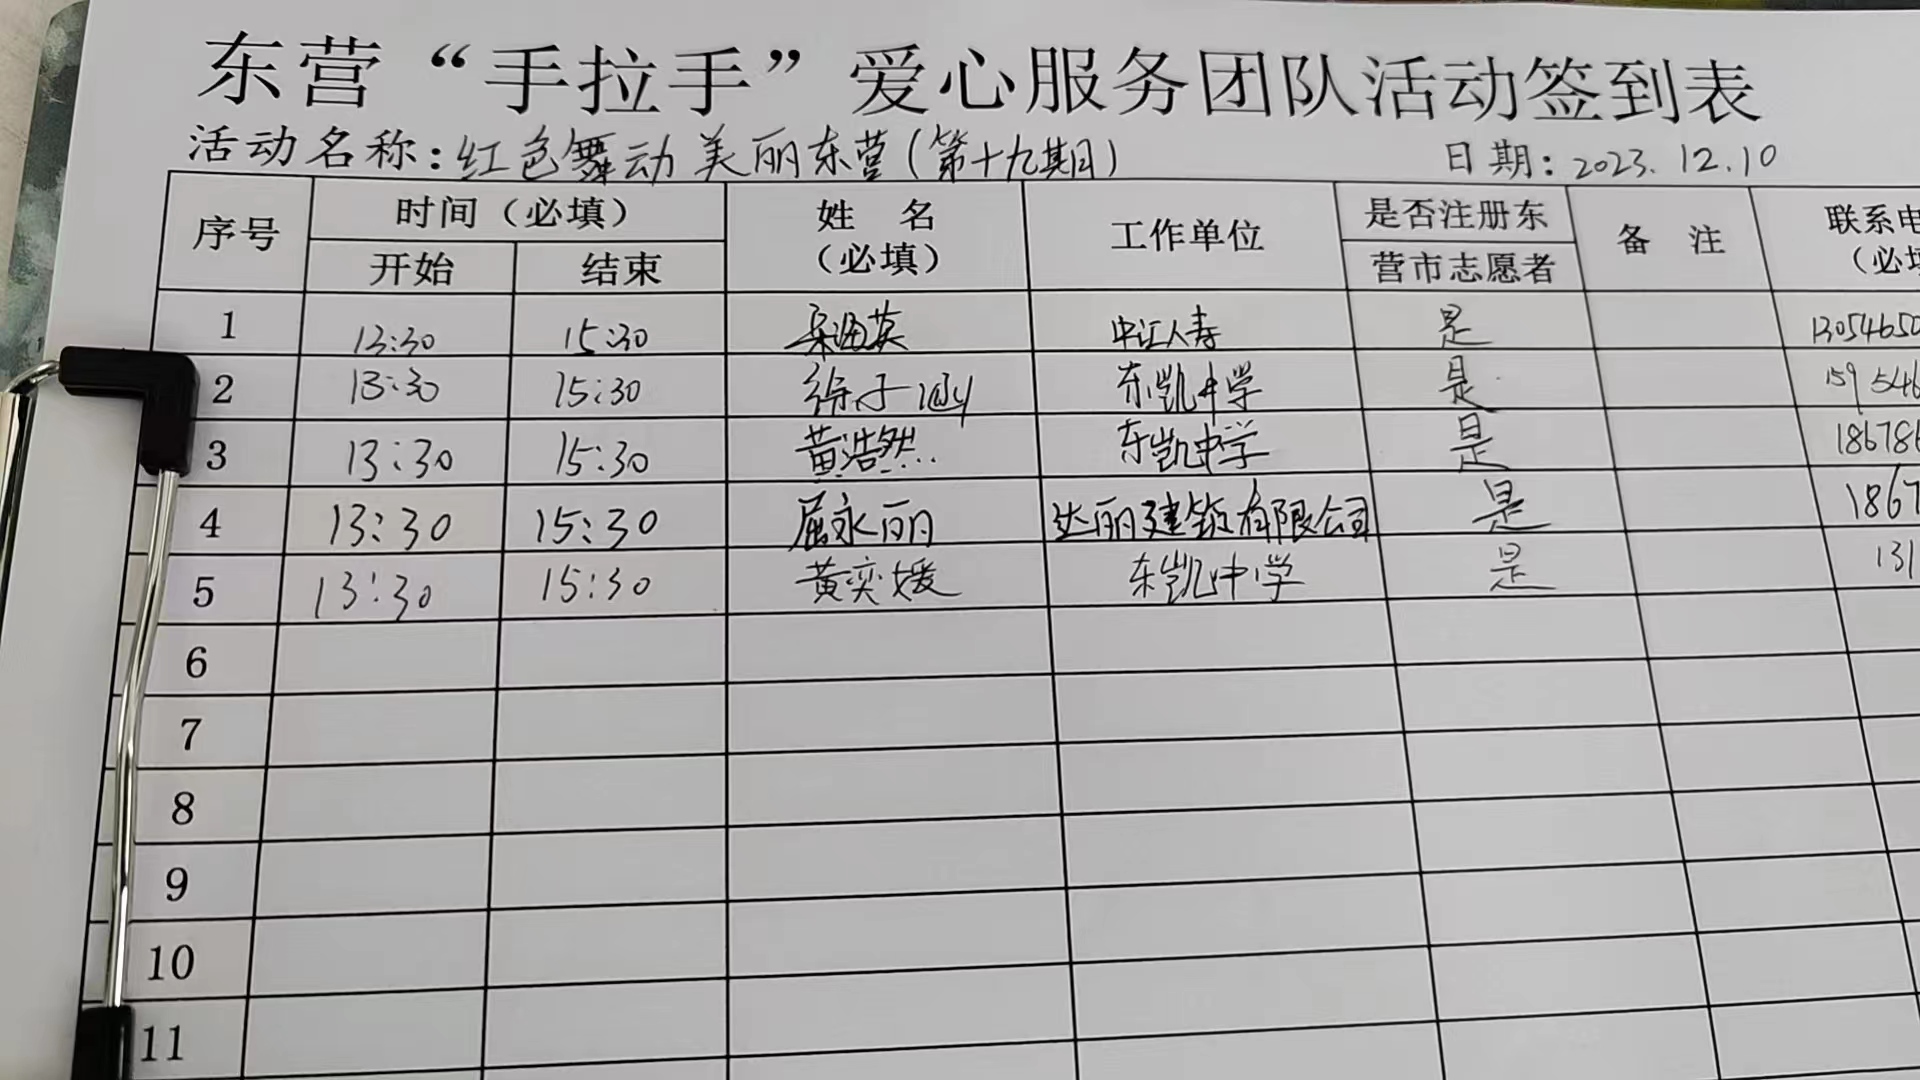 东营“手拉手”爱心服务团队活动签到表
活动名称：红色舞动 美丽东营（第十九期目） 日期：2023.12.10
序号 时间（必填） 姓 名（必填） 工作单位 是否注册东营市志愿者 备 注 联系电 （必填
开始 结束
1 13:30 15:30 中江人寿 是 1305465
2 13:30 15:30 徐子涵 东凯中学 是 159 546
3 13:30 15:30 黄浩然 东凯中学 是 186786
4 13:30 15:30 屈永丽 达丽建筑有限公司 是 1867
5 13:30 15:30 黄奕媛 东凯中学 是 131
6
7
8
9
10
11